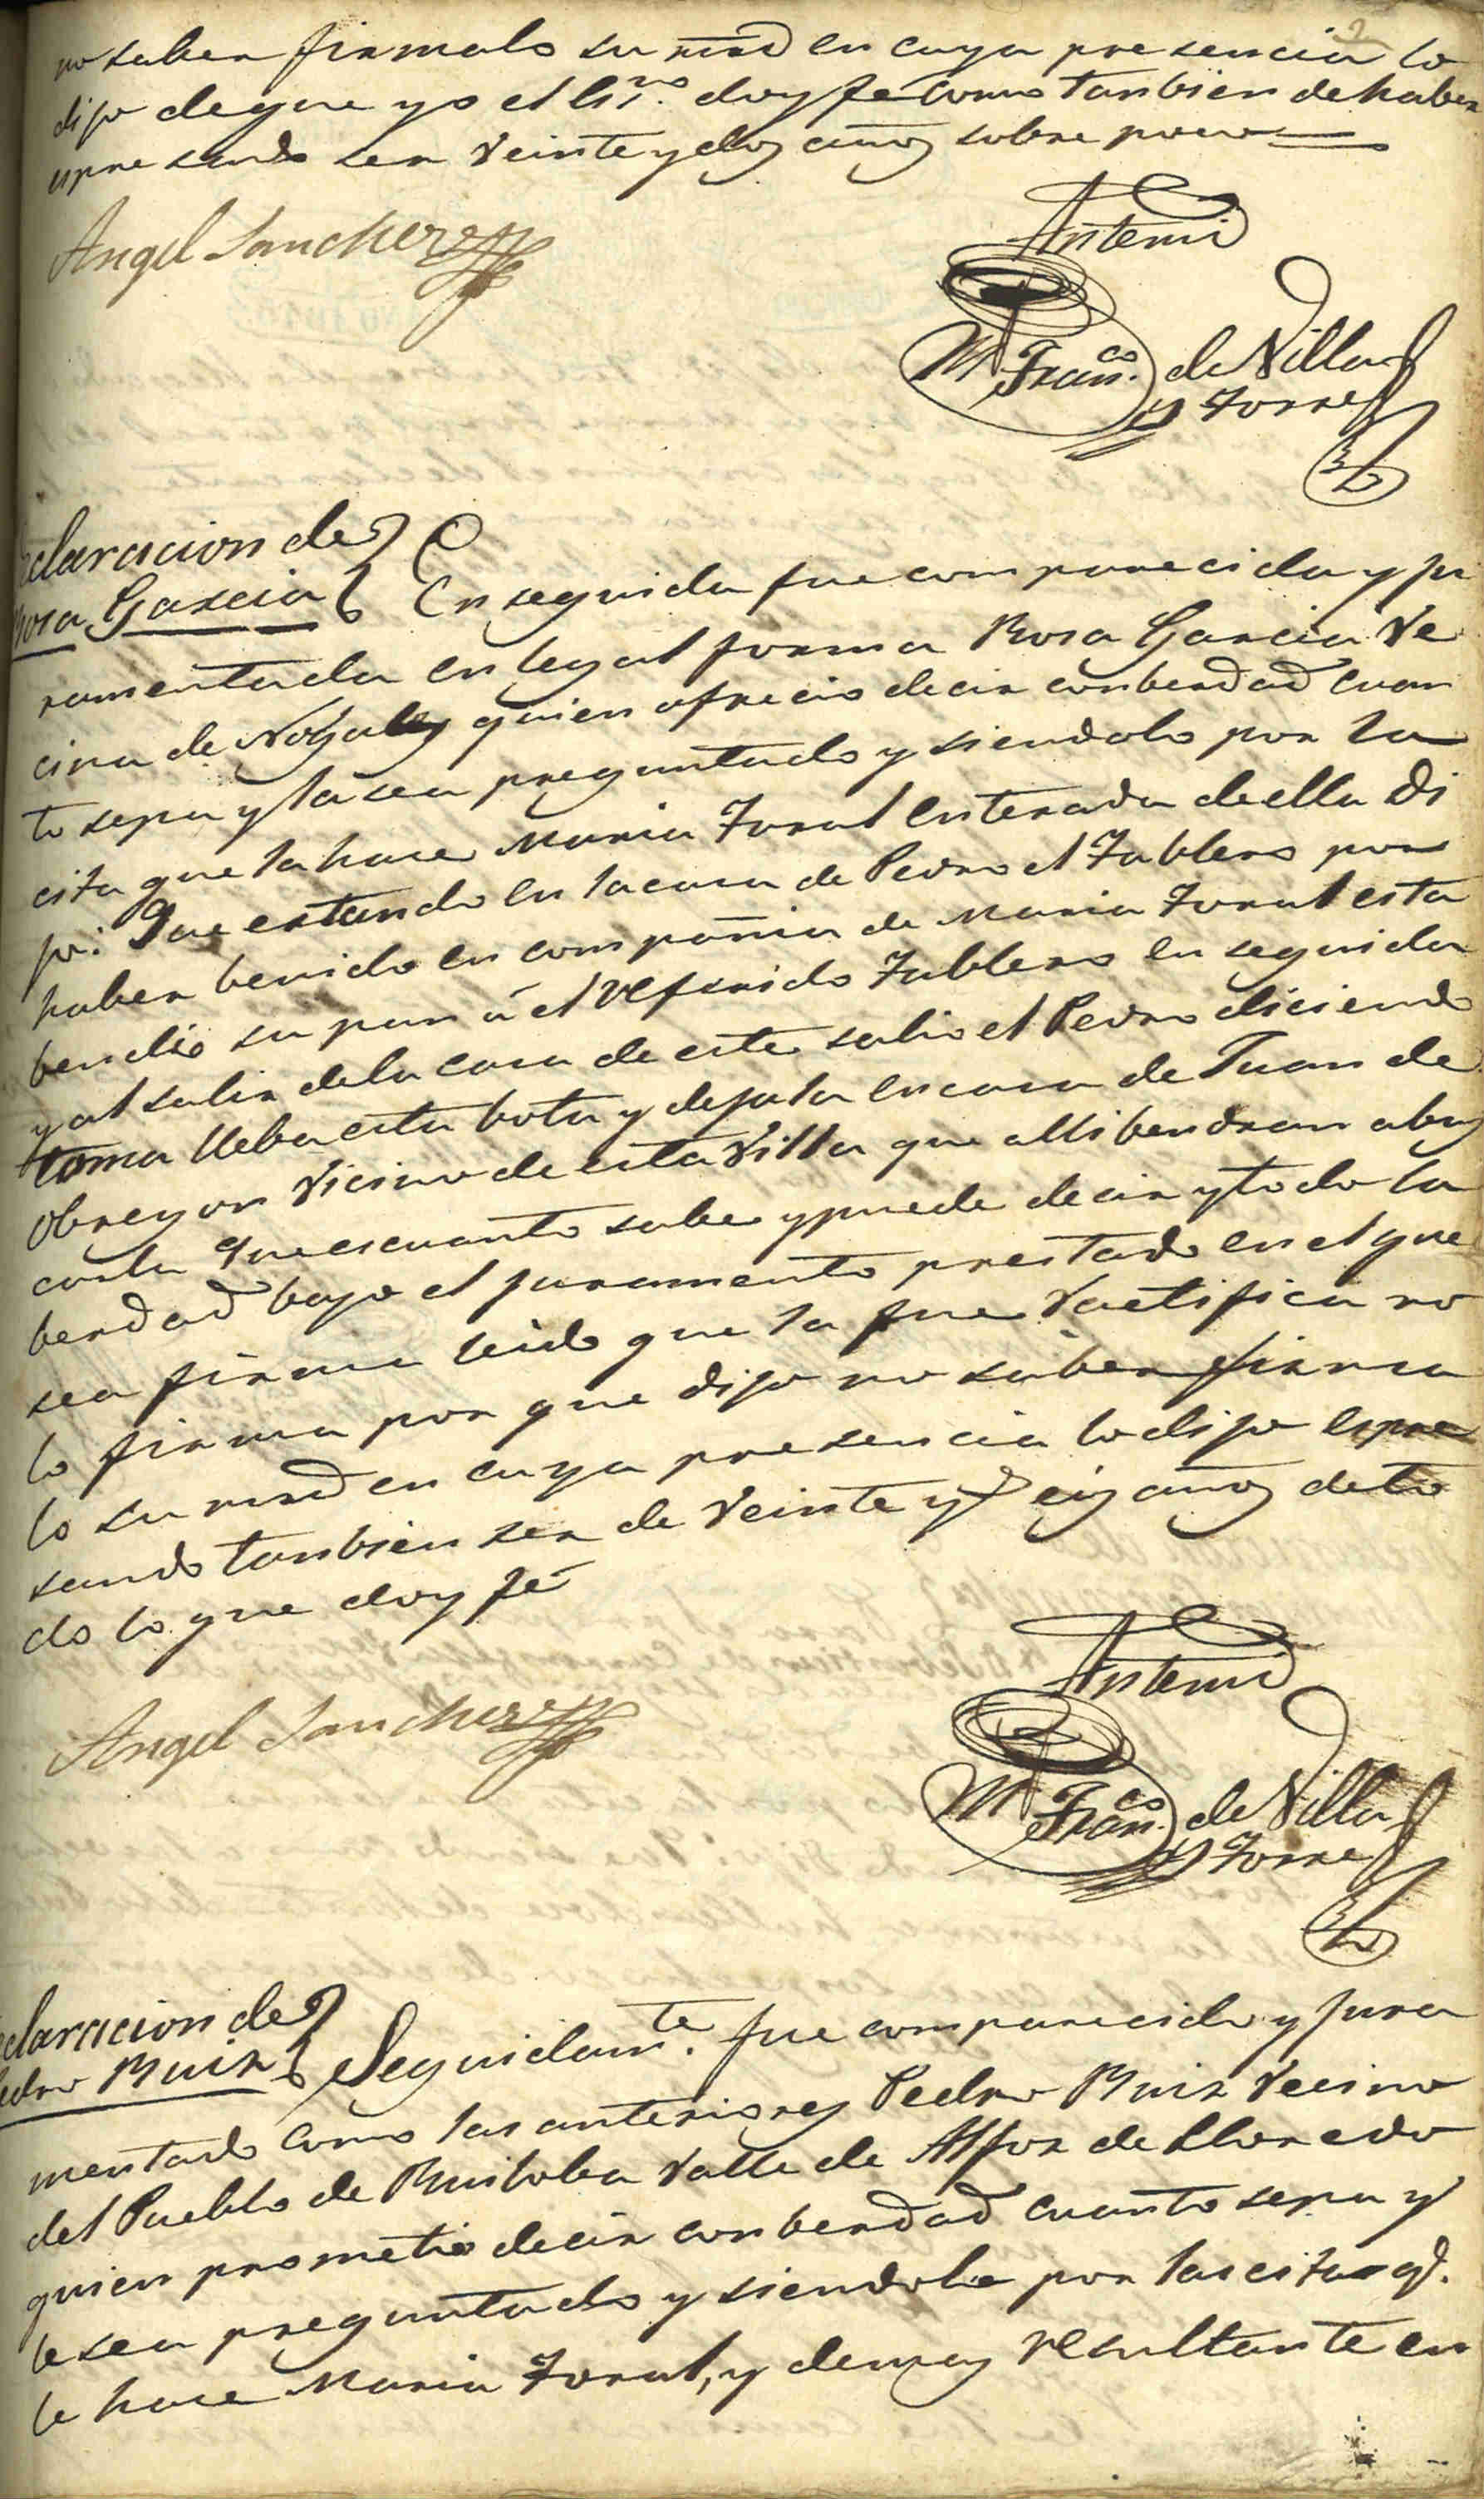 2
no saber firmalo su mrd en cuya presencia lo
dijo de que yo el Ess.no doy fe como tanbien de haber
espresando ser veinte y dos años sobre poco
Angel Sanchez
Antemi
M Fran.co de Villa
y Torre
claracion de
Rosa Garcia
En seguida fue comparecida y ju
ramentada en legal forma Rosa Garcia Ve
cina de Nobales quien ofrecio decir con berdad cuan
to sepa y la sea preguntado y siendolo por la
cita que la hace Maria Toral enterada de ella di
jo: Que estando en la casa de Pedro el Tablero por
haber benido en compañia de Maria Toral esta
bendio su pan á el referido Tablero en seguida
y al salir de la casa de este salio el Pedro diciendo
toma lleba esta bota y dejala en casa de Juan de
Obregon Vicino de esta Villa que alli bendran a bus
carla Que es cuanto sabe y puede decir y todo la
berdad bajo el juramento prestado en el que
sea firma leido que la fue ractifica no
lo firma por que dijo no saber firma
lo su mrd en cuya presencia lo dijo espre
sando tanbien ser de veinte y seis años de to
do lo que doy fé
Angel Sanchez
Antemi
M Fran.co de Villa
y Torre
claracion de
edro Ruiz
Seguidam.te fue comparecido y jura
mentado como las anteriores Pedro Ruiz Vecino
del Pueblo de Ruiloba Valle de Alfoz de Lloredo
quien prometio decir con berdad cuanto sepa y
le sea preguntado y siendole por las citas q.
le hace Maria Toral, y demas resultante en